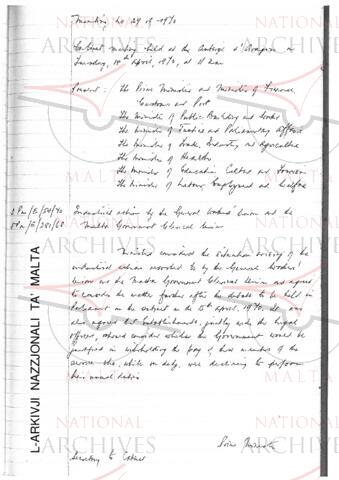 Meeting No 29 of 1970
Cabinet meeting held at the Auberge d'Aragon on
Tuesday, 14th April, 1970, at 11 am
Present: The Prime Minister and Minister of Finance,
Customs and Port
The Minister of Public Building and Works
The Minister of Justice and Parliamentary Affairs
The Minister of Trade, Industry, and Agriculture
The Minister of Health
The Minister of Education Culture and Tourism
The Minister of Labour Employment and Welfare
Industrial action by the General Workers' Union and the
Malta Government Clerical Union
Ministers considered the situation arising of the
industrial action resorted to by the General Workers'
Union and the Malta Government Clerical Union and agreed
to consider the matter further after the debate to be held in
Parliament on the subject on the 15th April, 1970. It was
also agreed that Establishments, jointly with the legal
officers, should consider whether the Government would be
justified in withholding the pay of those members of the
service who, while on duty, were declining to perform
their normal duties.
Prime Minister
Secretary to Cabinet
L-ARKIVJI NAZZJONALI TA' MALTA
NATIONAL
ARCHIVES
MALTA